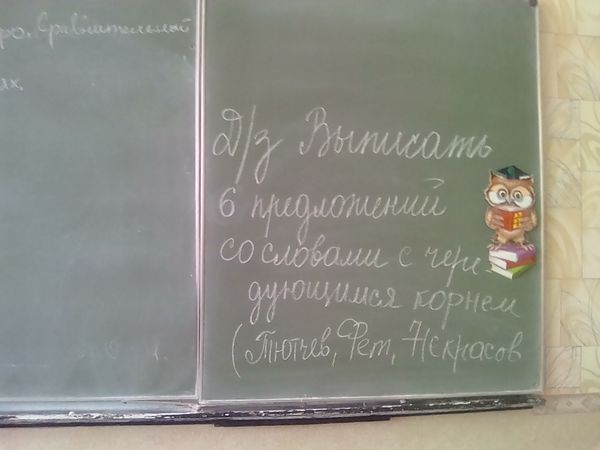 Сравнительной
Д/з Выписать
6 предложений
со словами с чере-
дующимся корнем
(Тютчев, Фет, Некрасов